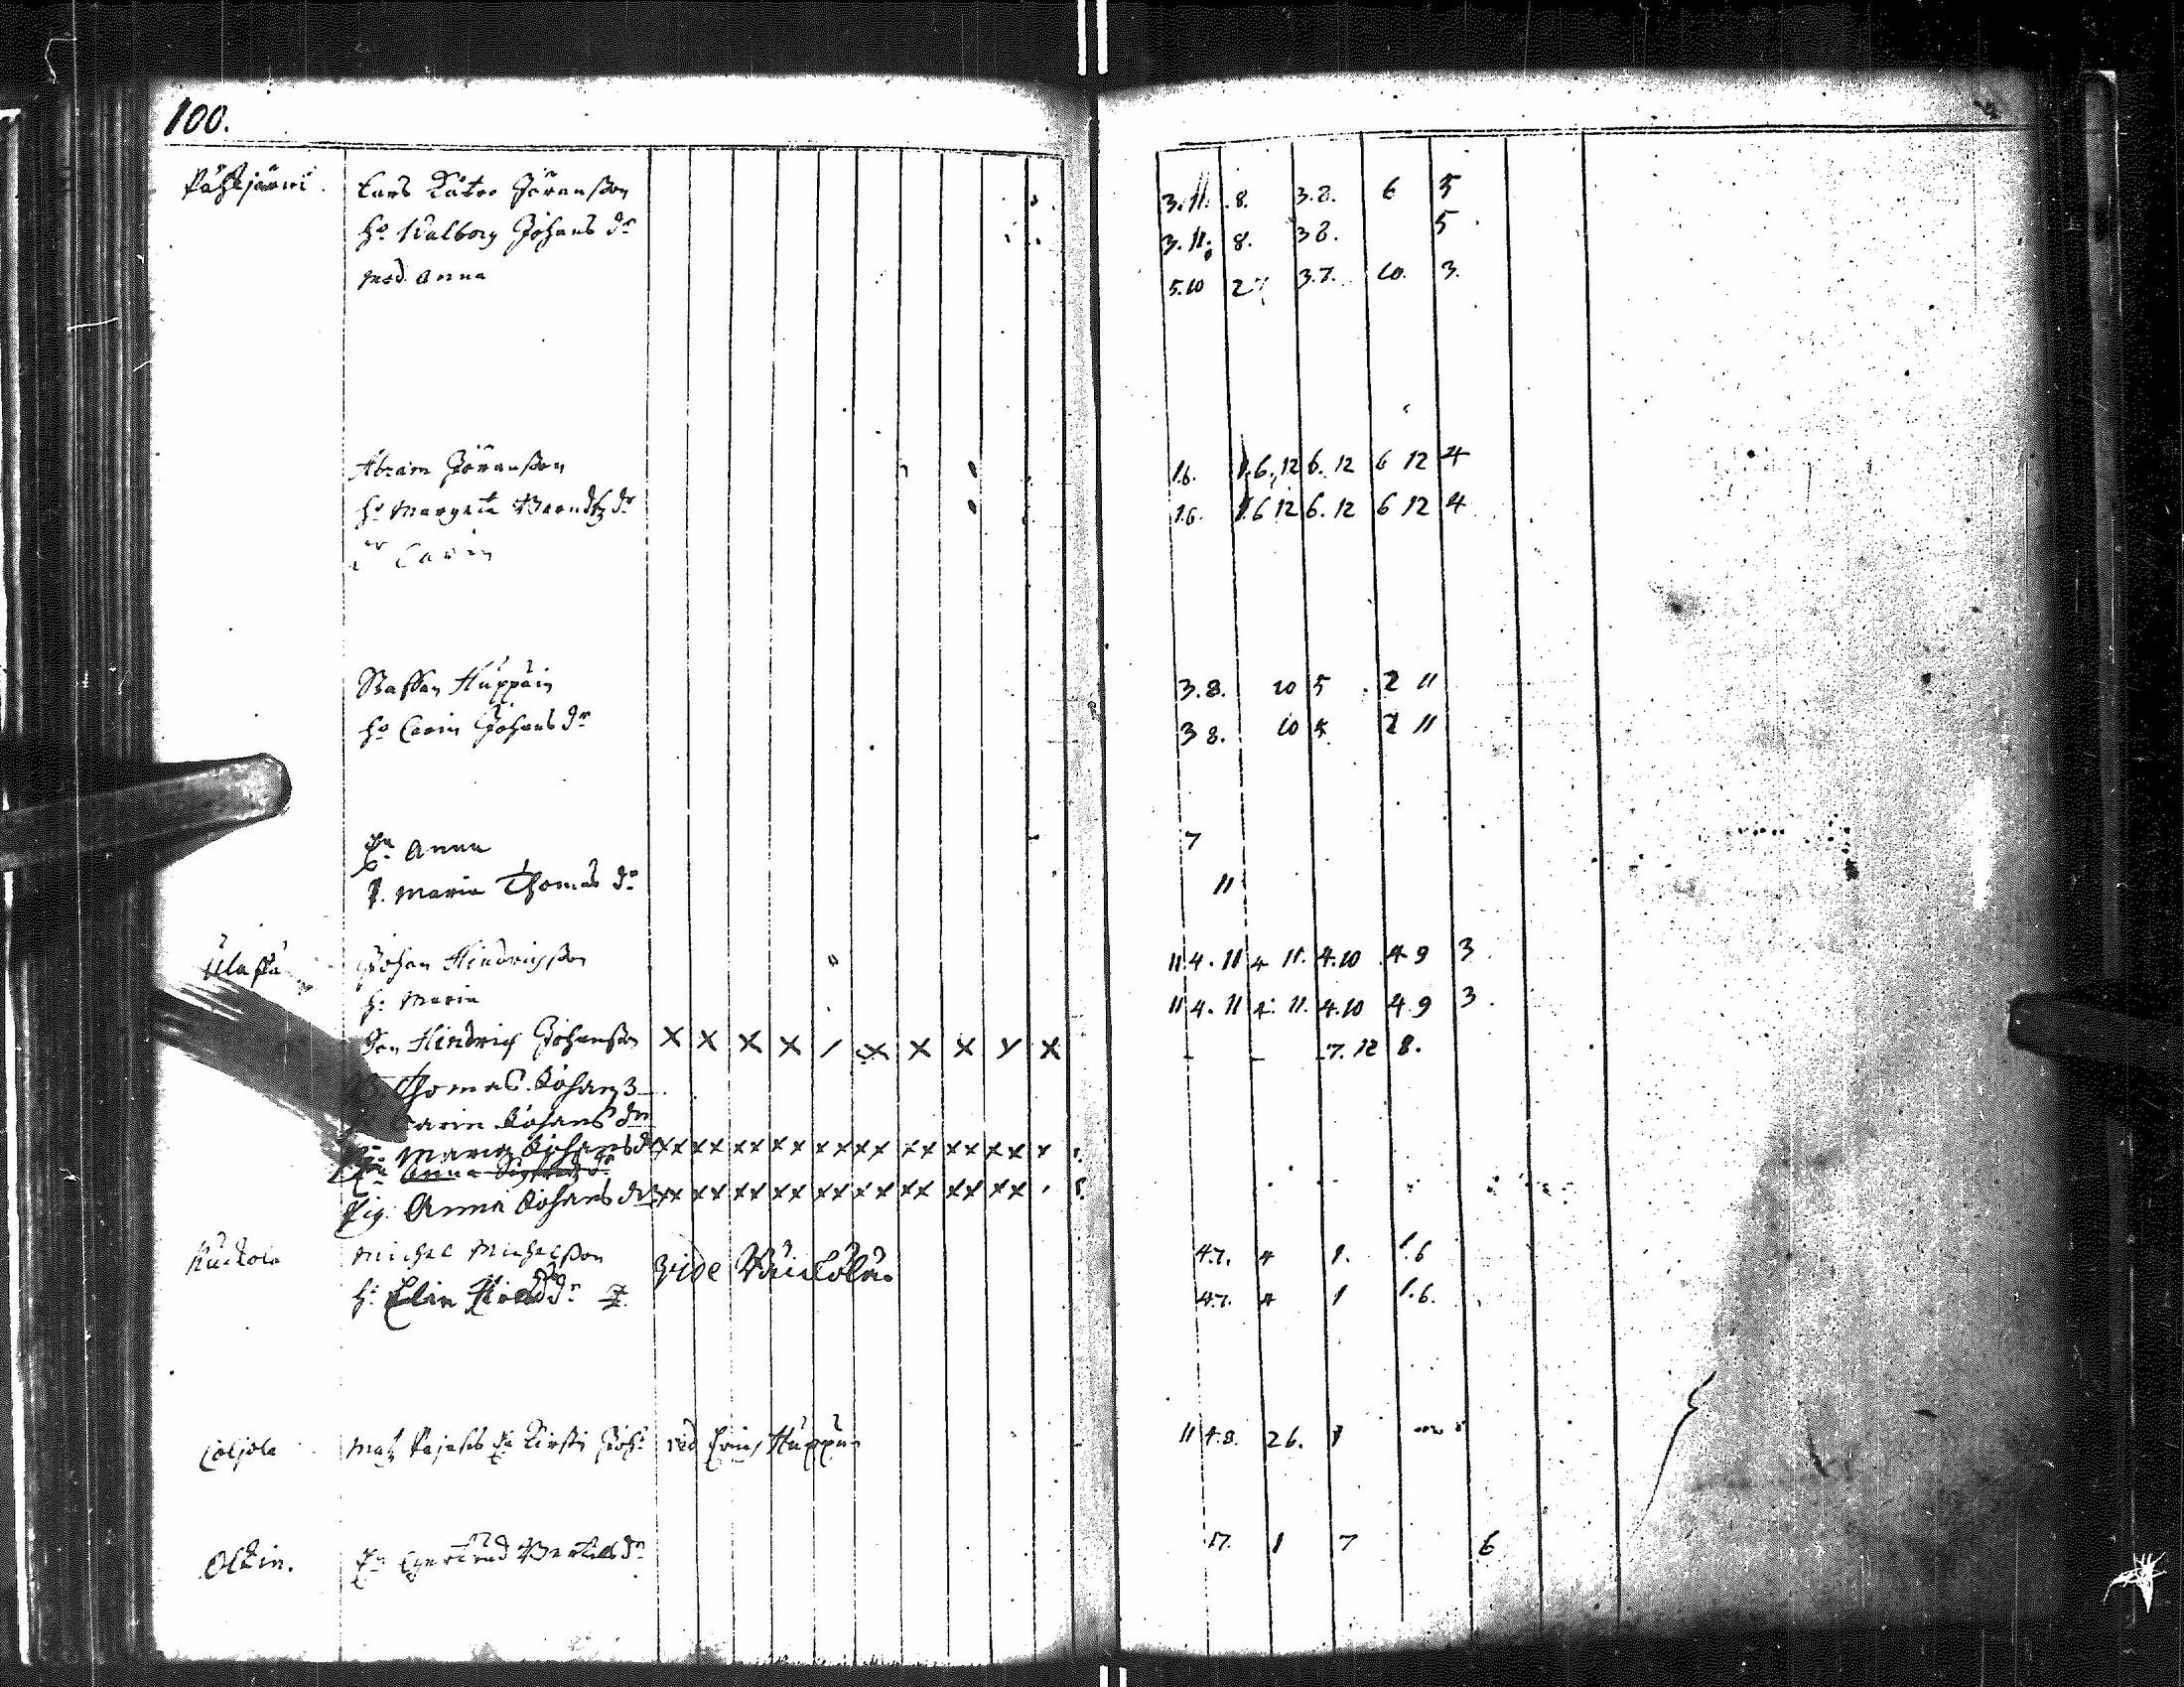 100.
Påhljärvi. Lars Låtvo Jöransson 3.11. 8. 3.8. 6 5
h: Walborg Johans dr 3.11. 8. 38. 5
mod. Anna 5.10 27 3.7. 10. 3.
Abram Jöransson 1.6. 1.6.12 6. 12 6 12 4
h: Margeta Berndtz dr 1.6. 1.6 12 6. 12 6 12 4
dr Carin
Staffan Huppain 3.8. 10 5 2 11
h: Carin Johans dr 3 8. 10 5 2 11
Anna 7
P. Maria Thomas dr 11
Ylapä Johan Hindrichsson 11 4. 11 4 11. 4.10 4 9 3
h: Maria 11 4. 11 4. 11. 4.10 4 9 3.
Son Hindrich Johansson x x x x / x x x y x - - 7. 12 8.
Thomas Johansz
Carin Johans dr
Maria Johans dr xx xx xx xx xx xx xx xx xx x
Anna
Pig. Anna Johans dr xx xx xx xx xx xx xx xx xx
Kuckola Michel Michelsson vide 4.7. 4 1. 1.6
h: Elin Hind dr 4.7. 4 1 1.6.
Coljola Matz Kirsti Joh: Erich Huppain 11 4.8. 26. 1
Olkin. Gertrud Bertils dr 17. 1 7 6